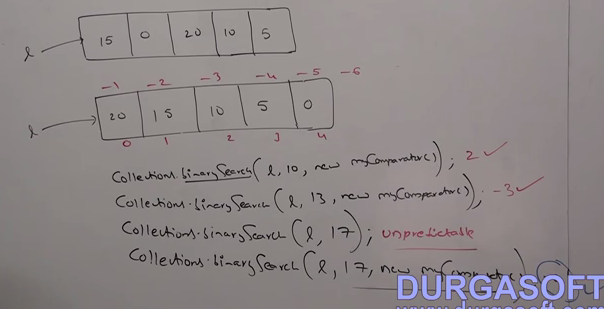 l 15 0 20 10 5
-1 -2 -3 -4 -5 -6
l 20 15 10 5 0
0 1 2 3 4
Collections.binarySearch(l, 10, new myComparator()); 2 ✓
Collections.binarySearch(l, 13, new myComparator()); -3 ✓
Collections.binarySearch(l, 17); unpredictable
Collections.binarySearch(l, 17, new myComparator()
DURGASOFT
www.durgasoft.com